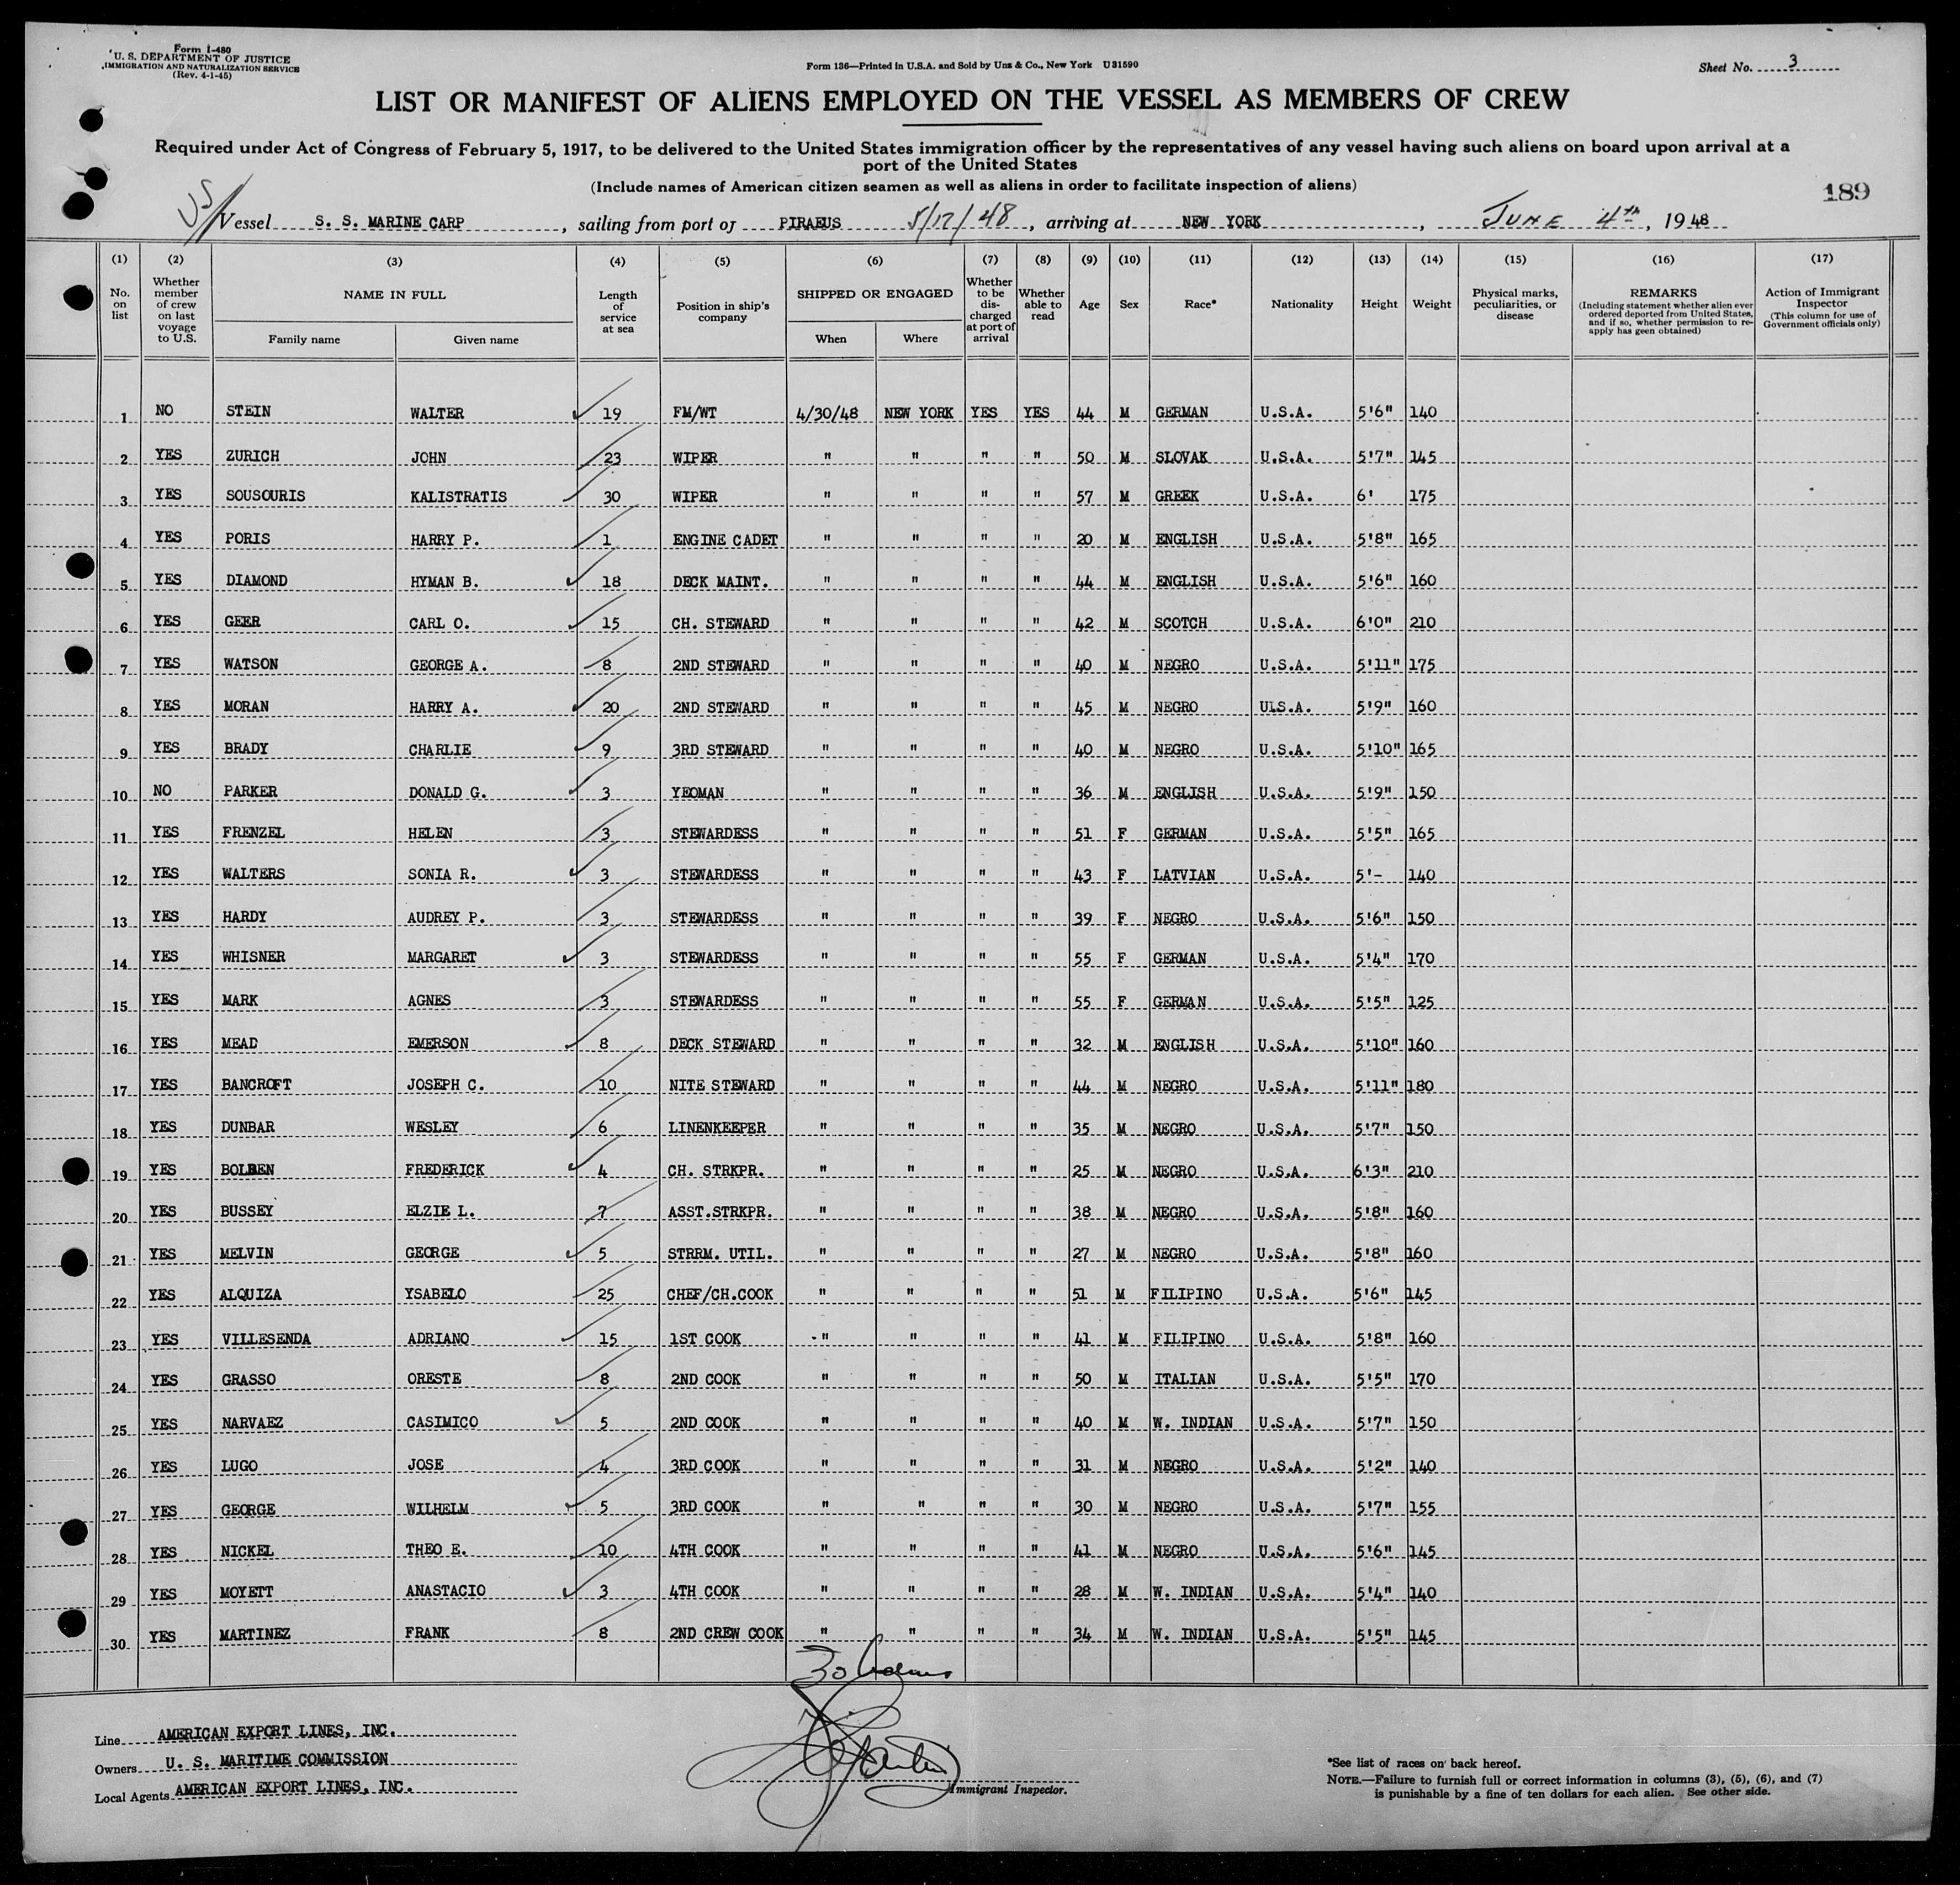 Form I-480
U. S. DEPARTMENT OF JUSTICE
IMMIGRATION AND NATURALIZATION SERVICE
(Rev. 4-1-45)
Form 136—Printed in U.S.A. and Sold by Unz & Co., New York U31590
Sheet No. 3
LIST OR MANIFEST OF ALIENS EMPLOYED ON THE VESSEL AS MEMBERS OF CREW
Required under Act of Congress of February 5, 1917, to be delivered to the United States immigration officer by the representatives of any vessel having such aliens on board upon arrival at a
port of the United States
(Include names of American citizen seamen as well as aliens in order to facilitate inspection of aliens)
189
US/ Vessel S. S. MARINE CARP, sailing from port of PIRAEUS 5/17/48, arriving at NEW YORK, JUNE 4th, 1948
(1) (2) (3) (4) (5) (6) (7) (8) (9) (10) (11) (12) (13) (14) (15) (16) (17)
No. on list
Whether member of crew on last voyage to U.S.
NAME IN FULL
Family name
Given name
Length of service at sea
Position in ship's company
SHIPPED OR ENGAGED
When
Where
Whether to be discharged at port of arrival
Whether able to read
Age
Sex
Race*
Nationality
Height
Weight
Physical marks, peculiarities, or disease
REMARKS
(Including statement whether alien ever ordered deported from United States, and if so, whether permission to reapply has geen obtained)
Action of Immigrant Inspector
(This column for use of Government officials only)
1 NO STEIN WALTER 19 FM/WT 4/30/48 NEW YORK YES YES 44 M GERMAN U.S.A. 5'6" 140
2 YES ZURICH JOHN 23 WIPER " " " " 50 M SLOVAK U.S.A. 5'7" 145
3 YES SOUSOURIS KALISTRATIS 30 WIPER " " " " 57 M GREEK U.S.A. 6' 175
4 YES PORIS HARRY P. 1 ENGINE CADET " " " " 20 M ENGLISH U.S.A. 5'8" 165
5 YES DIAMOND HYMAN B. 18 DECK MAINT. " " " " 44 M ENGLISH U.S.A. 5'6" 160
6 YES GEER CARL O. 15 CH. STEWARD " " " " 42 M SCOTCH U.S.A. 6'0" 210
7 YES WATSON GEORGE A. 8 2ND STEWARD " " " " 40 M NEGRO U.S.A. 5'11" 175
8 YES MORAN HARRY A. 20 2ND STEWARD " " " " 45 M NEGRO U.S.A. 5'9" 160
9 YES BRADY CHARLIE 9 3RD STEWARD " " " " 40 M NEGRO U.S.A. 5'10" 165
10 NO PARKER DONALD G. 3 YEOMAN " " " " 36 M ENGLISH U.S.A. 5'9" 150
11 YES FRENZEL HELEN 3 STEWARDESS " " " " 51 F GERMAN U.S.A. 5'5" 165
12 YES WALTERS SONIA R. 3 STEWARDESS " " " " 43 F LATVIAN U.S.A. 5'- 140
13 YES HARDY AUDREY P. 3 STEWARDESS " " " " 39 F NEGRO U.S.A. 5'6" 150
14 YES WHISNER MARGARET 3 STEWARDESS " " " " 55 F GERMAN U.S.A. 5'4" 170
15 YES MARK AGNES 3 STEWARDESS " " " " 55 F GERMAN U.S.A. 5'5" 125
16 YES MEAD EMERSON 8 DECK STEWARD " " " " 32 M ENGLISH U.S.A. 5'10" 160
17 YES BANCROFT JOSEPH C. 10 NITE STEWARD " " " " 44 M NEGRO U.S.A. 5'11" 180
18 YES DUNBAR WESLEY 6 LINENKEEPER " " " " 35 M NEGRO U.S.A. 5'7" 150
19 YES BOLDEN FREDERICK 4 CH. STRKPR. " " " " 25 M NEGRO U.S.A. 6'3" 210
20 YES BUSSEY ELZIE L. 7 ASST.STRKPR. " " " " 38 M NEGRO U.S.A. 5'8" 160
21 YES MELVIN GEORGE 5 STRRM. UTIL. " " " " 27 M NEGRO U.S.A. 5'8" 160
22 YES ALQUIZA YSABELO 25 CHEF/CH.COOK " " " " 51 M FILIPINO U.S.A. 5'6" 145
23 YES VILLESENDA ADRIANO 15 1ST COOK " " " " 41 M FILIPINO U.S.A. 5'8" 160
24 YES GRASSO ORESTE 8 2ND COOK " " " " 50 M ITALIAN U.S.A. 5'5" 170
25 YES NARVAEZ CASIMICO 5 2ND COOK " " " " 40 M W. INDIAN U.S.A. 5'7" 150
26 YES LUGO JOSE 4 3RD COOK " " " " 31 M NEGRO U.S.A. 5'2" 140
27 YES GEORGE WILHELM 5 3RD COOK " " " " 30 M NEGRO U.S.A. 5'7" 155
28 YES NICKEL THEO E. 10 4TH COOK " " " " 41 M NEGRO U.S.A. 5'6" 145
29 YES MOYETT ANASTACIO 3 4TH COOK " " " " 28 M W. INDIAN U.S.A. 5'4" 140
30 YES MARTINEZ FRANK 8 2ND CREW COOK " " " " 34 M W. INDIAN U.S.A. 5'5" 145
30
Line AMERICAN EXPORT LINES, INC.
Owners U. S. MARITIME COMMISSION
Local Agents AMERICAN EXPORT LINES, INC.
Immigrant Inspector.
*See list of races on back hereof.
NOTE.—Failure to furnish full or correct information in columns (3), (5), (6), and (7)
is punishable by a fine of ten dollars for each alien. See other side.